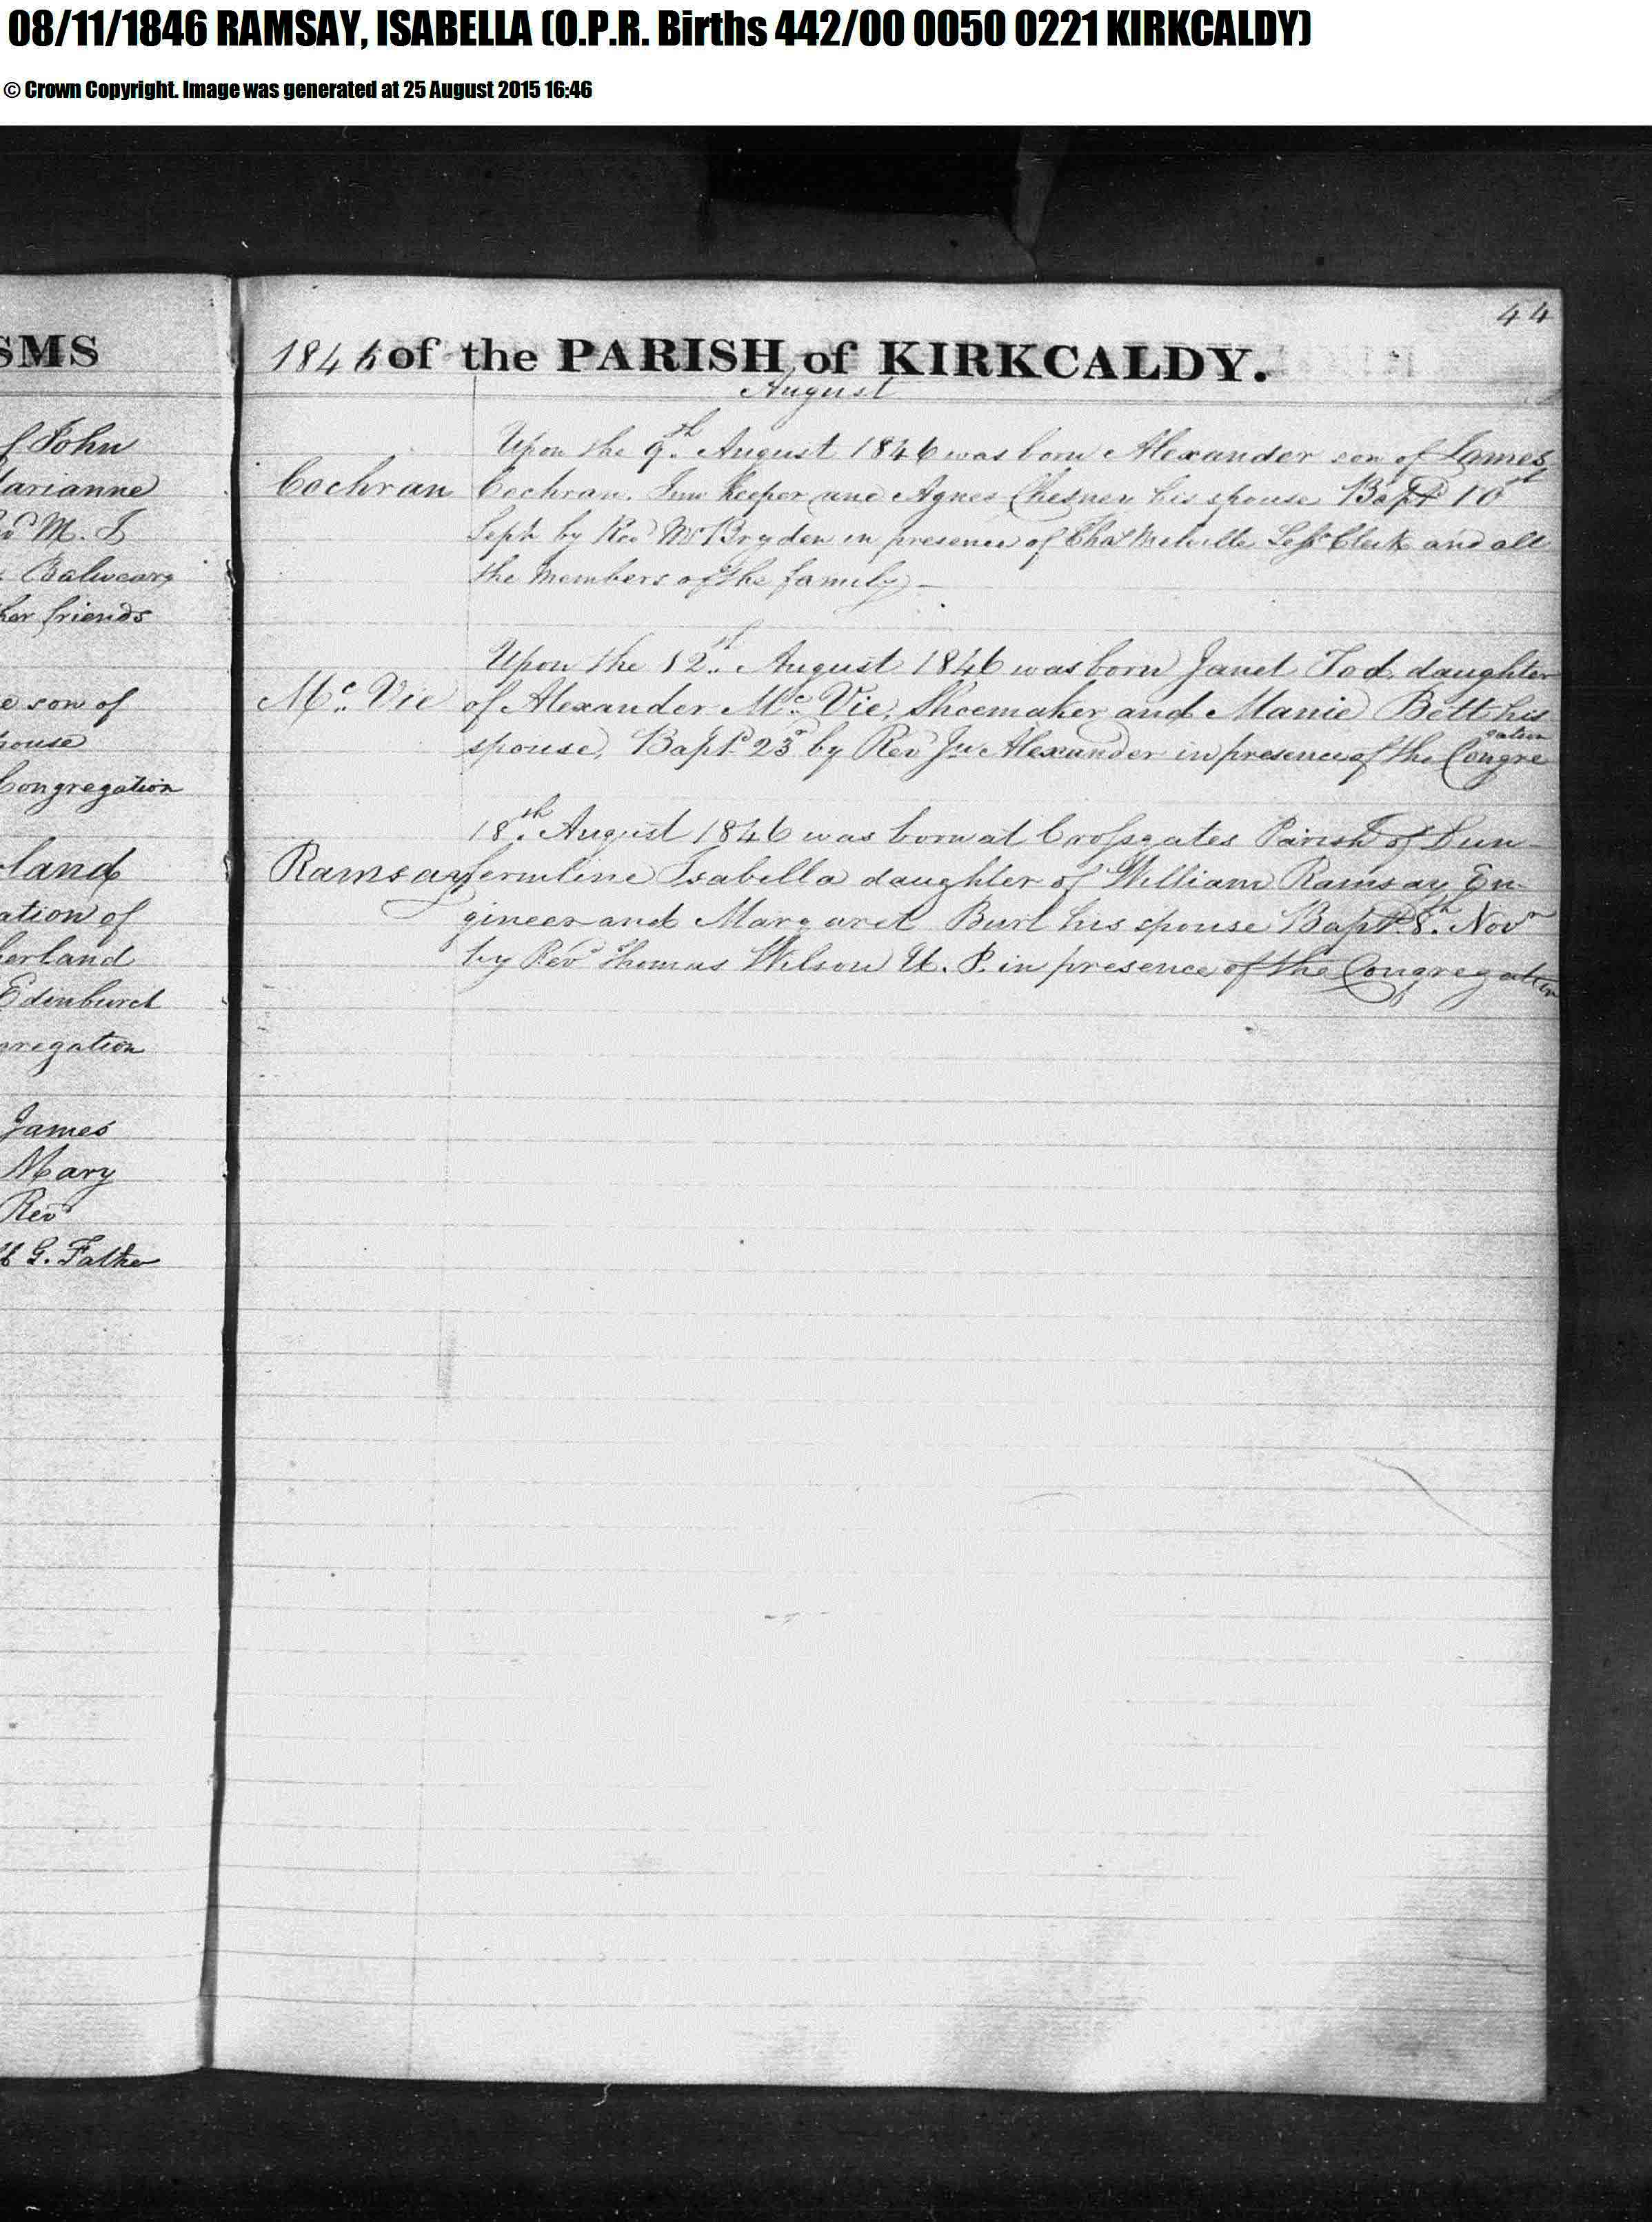 08/11/1846 RAMSAY, ISABELLA (O.P.R. Births 442/00 0050 0221 KIRKCALDY)
© Crown Copyright. Image was generated at 25 August 2015 16:46
44
SMS
f John
arianne
M. S
Balweary
her friends
e son of
pouse
Congregation
land
ation of
herland
Edinburgh
gregation
James
Mary
Rev
G. Father
1846 of the PARISH of KIRKCALDY.
August
Upon the 9th August 1846 was born Alexander son of James
Cochran Cochran. Inn Keeper and Agnes his spouse Bapd 10
Sept by Revd Mr Bryden in presence of Chas Melville Sess Clerk and all
the members of the family
Upon the 12th August 1846 was born Janet Tod daughter
Mc Vie of Alexander Mc Vie, Shoemaker and Manie Bett his
spouse, Bapd 23d by Rev Jn Alexander in presence of the Congregation
18th August 1846 was born at Crossgates Parish of Dun
Ramsay fermline Isabella daughter of William Ramsay En-
gineer and Margaret Burt his spouse Bapd 8th Novr
by Revd Thomas Wilson U. P. in presence of the Congregation